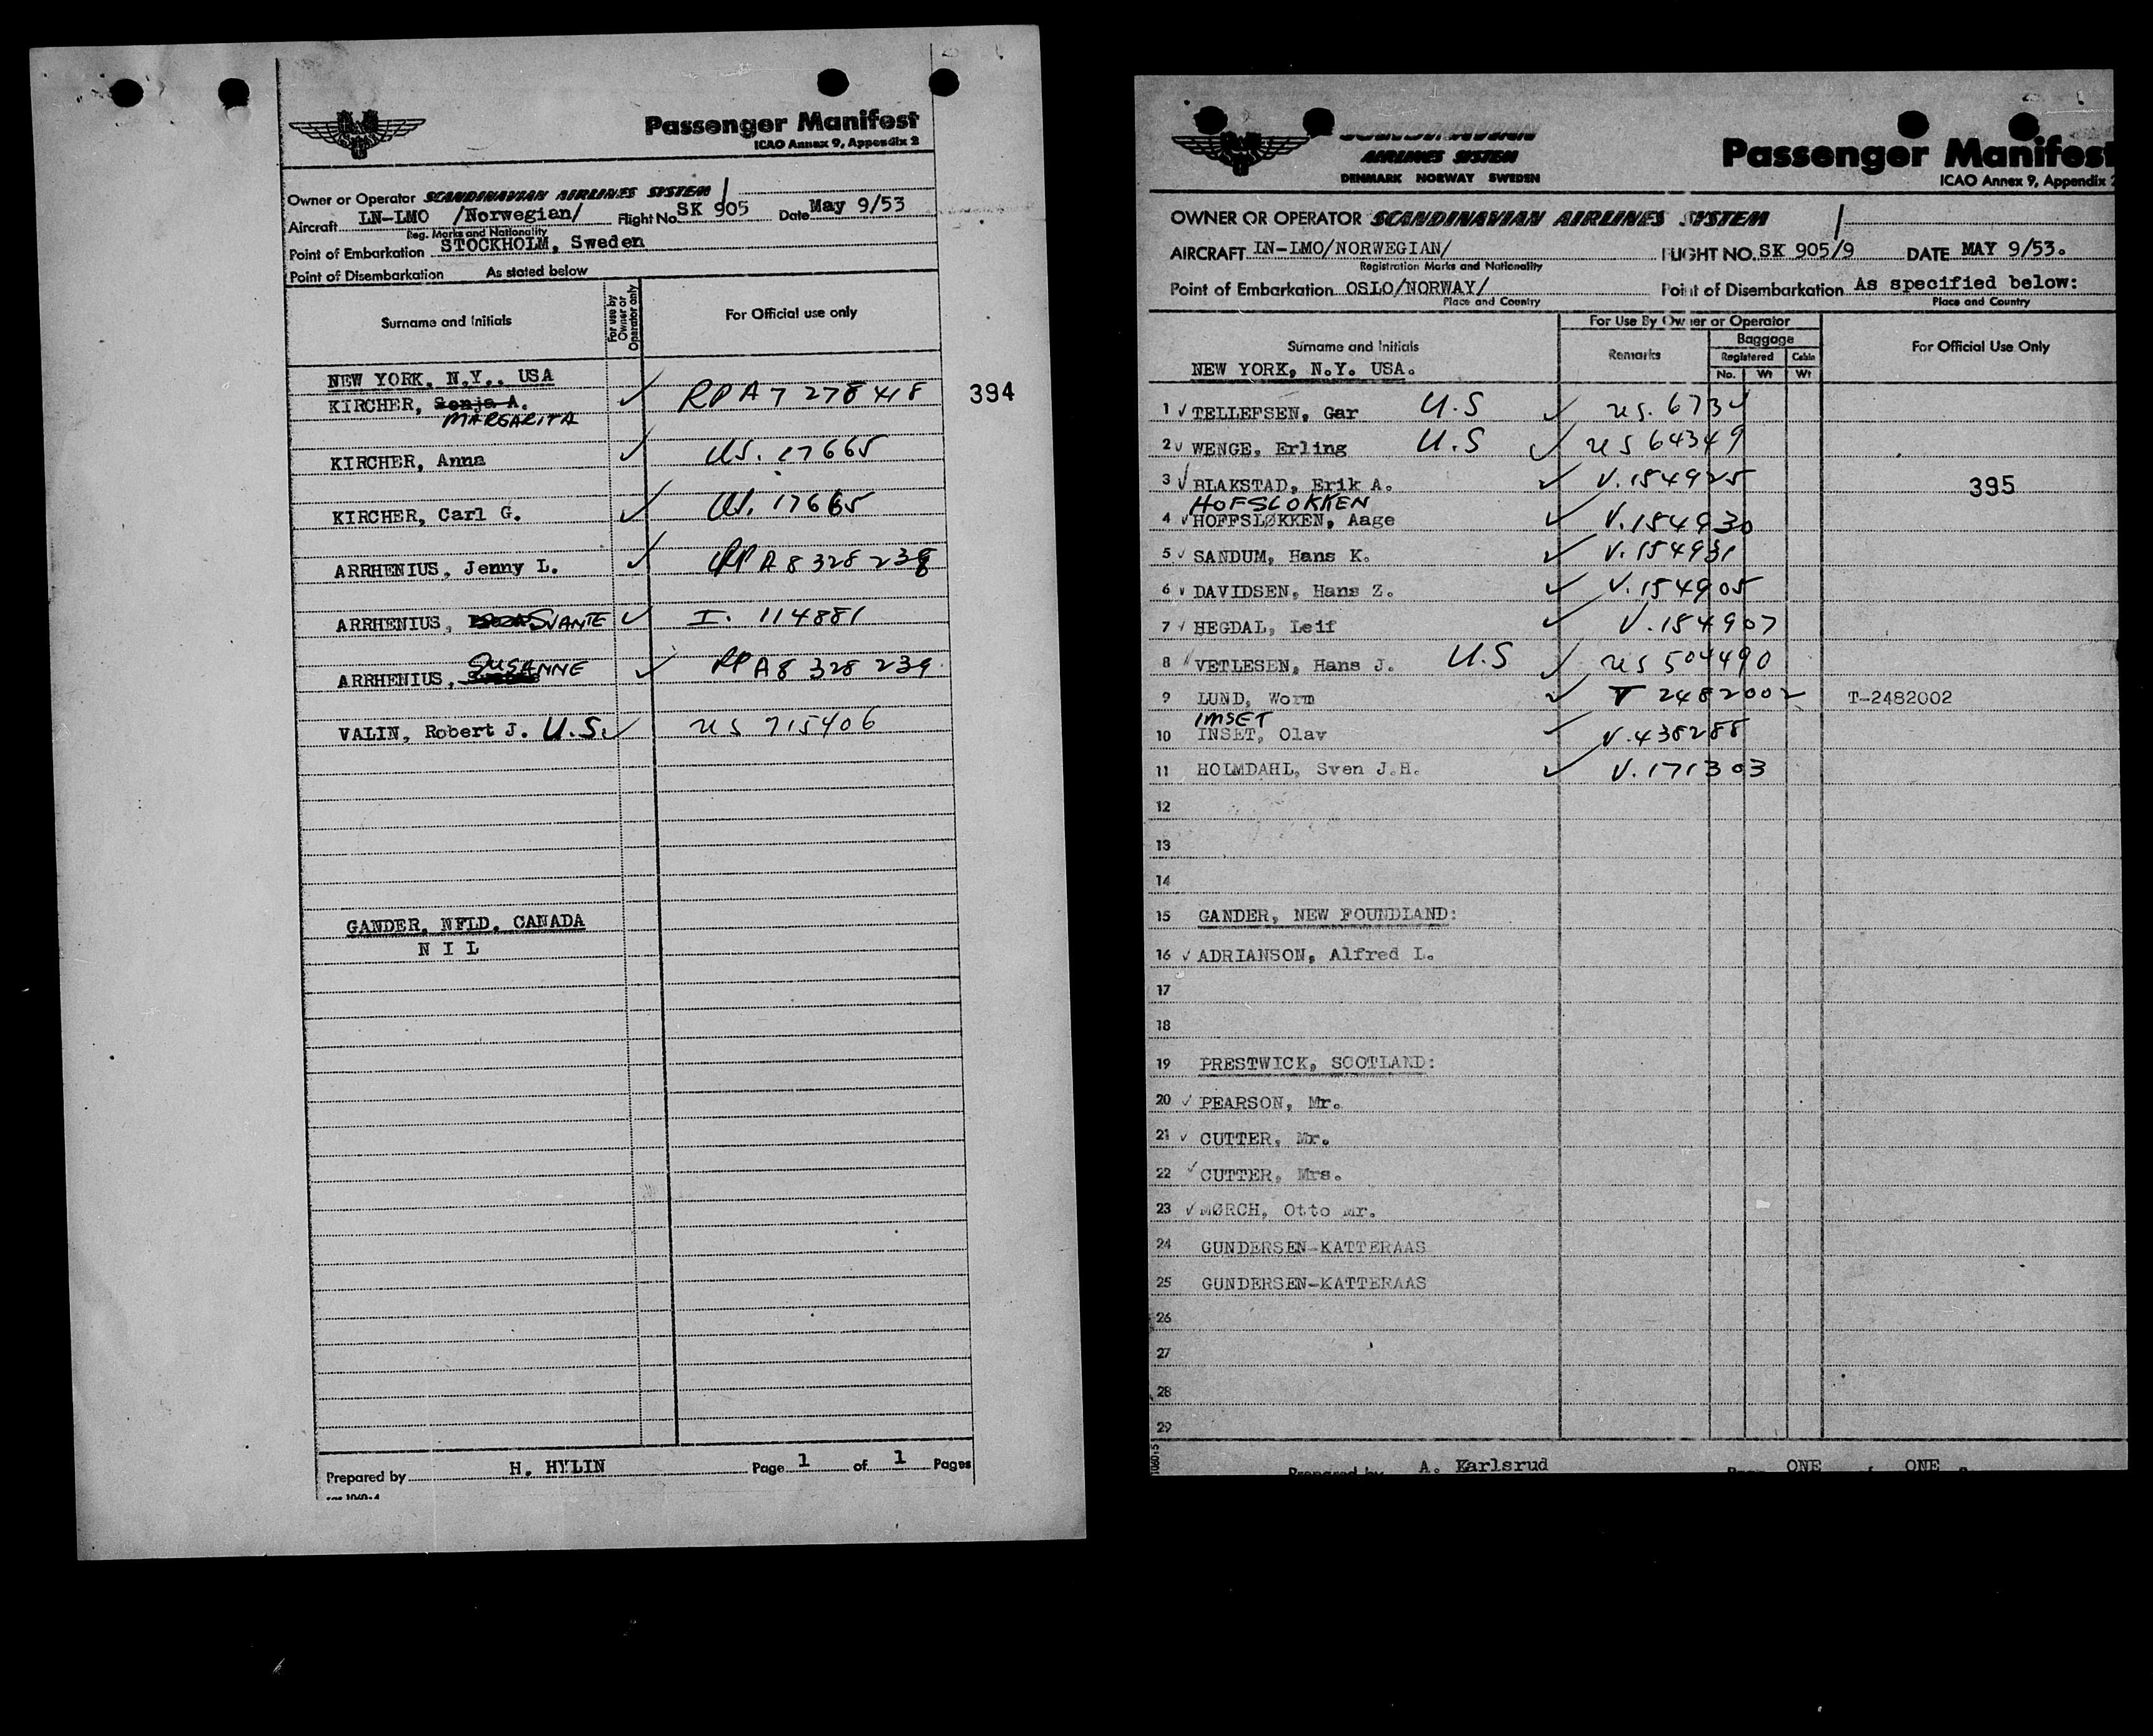 Passenger Manifest
ICAO Annex 9, Appendix 2
Owner or Operator SCANDINAVIAN AIRLINES SYSTEM
Aircraft LN-LMO /Norwegian/ Flight No. SK 905 Date May 9/53
Reg. Marks and Nationality
Point of Embarkation STOCKHOLM, Sweden
Point of Disembarkation As stated below
Surname and Initials
For use by Owner or Operator only
For Official use only
NEW YORK, N.Y., USA
KIRCHER, Sonja A. ✓ RP A7 278418 394
MARGARITA
KIRCHER, Anna ✓ US. 17665
KIRCHER, Carl G. ✓ US. 17665
ARRHENIUS, Jenny L. ✓ RP A8 328 238
ARRHENIUS, SVANTE ✓ I. 114881
ARRHENIUS, SUSANNE ✓ RP A8 328 239
VALIN, Robert J. U.S. ✓ US 715406
GANDER, NFLD, CANADA
N I L
Prepared by H. HYLIN Page 1 of 1 Pages
AIRLINES SYSTEM
DENMARK NORWAY SWEDEN
Passenger Manifest
ICAO Annex 9, Appendix 2
OWNER OR OPERATOR SCANDINAVIAN AIRLINES SYSTEM
AIRCRAFT LN-LMO/NORWEGIAN/ FLIGHT NO. SK 905/9 DATE MAY 9/53.
Registration Marks and Nationality
Point of Embarkation OSLO/NORWAY/ Point of Disembarkation As specified below:
Place and Country Place and Country
For Use By Owner or Operator
Surname and Initials Remarks Baggage For Official Use Only
Registered Cabin
NEW YORK, N.Y. USA. No. Wt Wt
1 ✓ TELLEFSEN, Gar U.S ✓
2 ✓ WENGE, Erling U.S ✓ US 64349
3 ✓ BLAKSTAD, Erik A. ✓ V.154925 395
HOFSLOKKEN
4 ✓ HOFFSLØKKEN, Aage ✓ V.154930
5 ✓ SANDUM, Hans K. ✓ V.154931
6 ✓ DAVIDSEN, Hans Z. ✓ V.154905
7 ✓ HEGDAL, Leif ✓ V.154907
8 ✓ VETLESEN, Hans J. U.S ✓ US 504490
9 LUND, Worm ✓ T 2482002 T-2482002
IMSET
10 INSET, Olav ✓ V.438288
11 HOLMDAHL, Sven J.H. ✓ V.171303
12
13
14
15 GANDER, NEW FOUNDLAND:
16 ✓ ADRIANSON, Alfred L.
17
18
19 PRESTWICK, SCOTLAND:
20 ✓ PEARSON, Mr.
21 ✓ CUTTER, Mr.
22 ✓ CUTTER, Mrs.
23 ✓ MØRCH, Otto Mr.
24 GUNDERSEN-KATTERAAS
25 GUNDERSEN-KATTERAAS
26
27
28
29
Prepared by A. Karlsrud ONE ONE